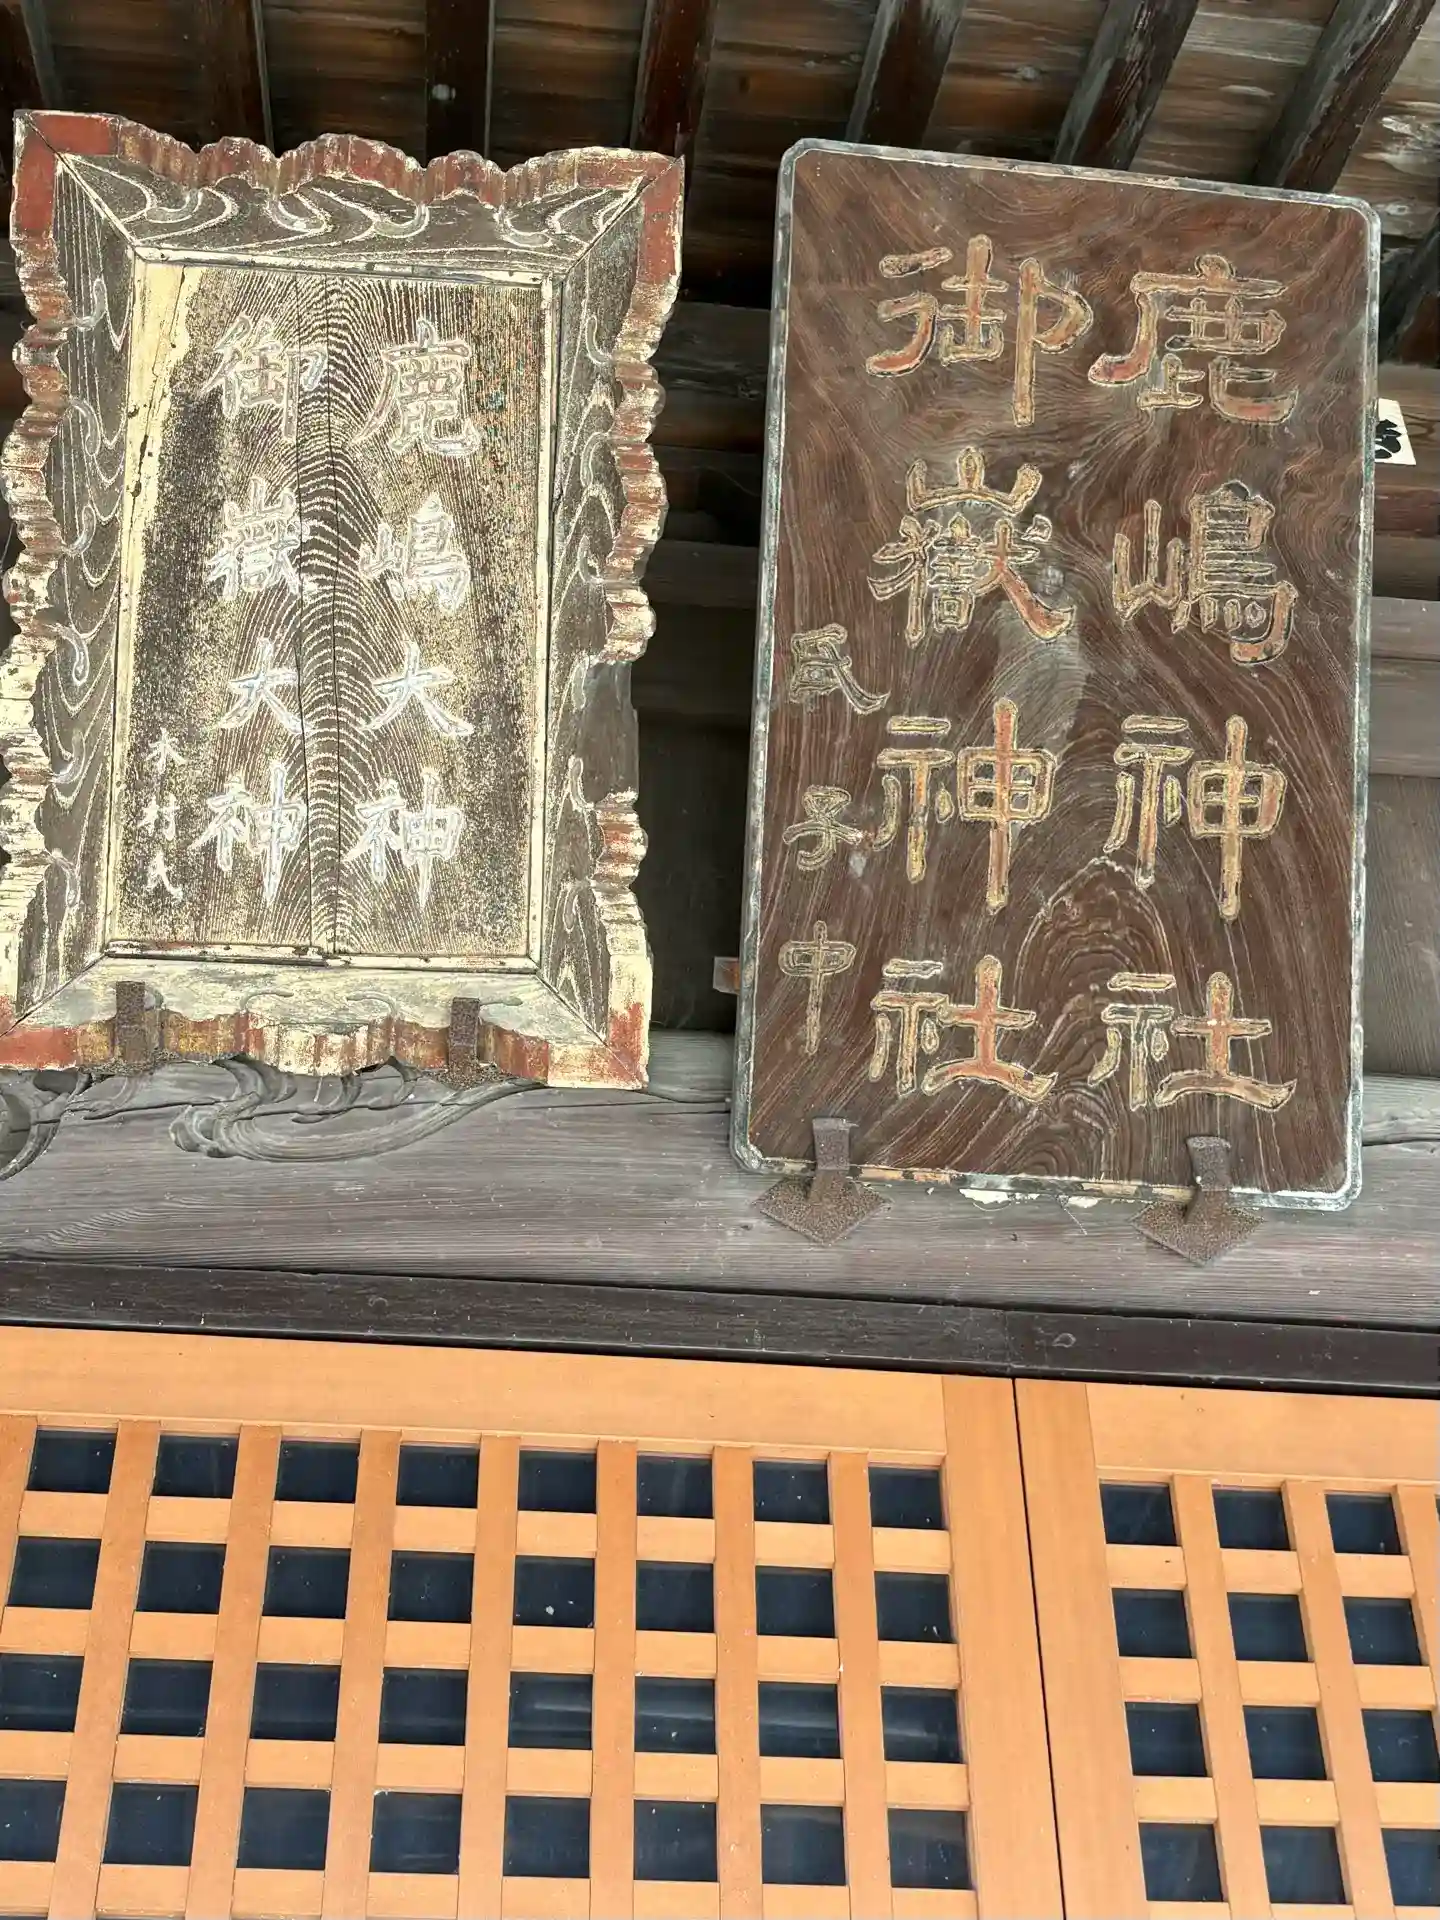 鹿嶋神社
御嶽神社
氏子中
鹿嶋大神
御嶽大神
木村氏